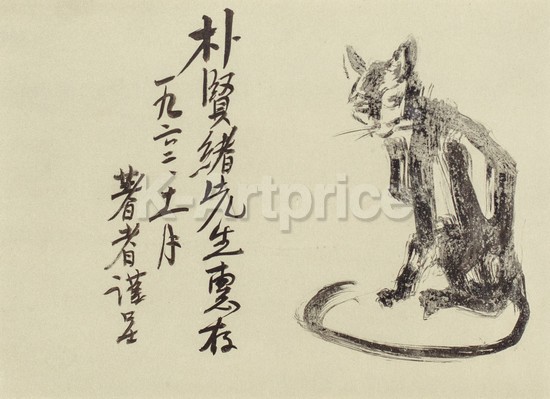 朴賢緖先生惠存
一九六二、十一月
著者謹呈
K-Artprice